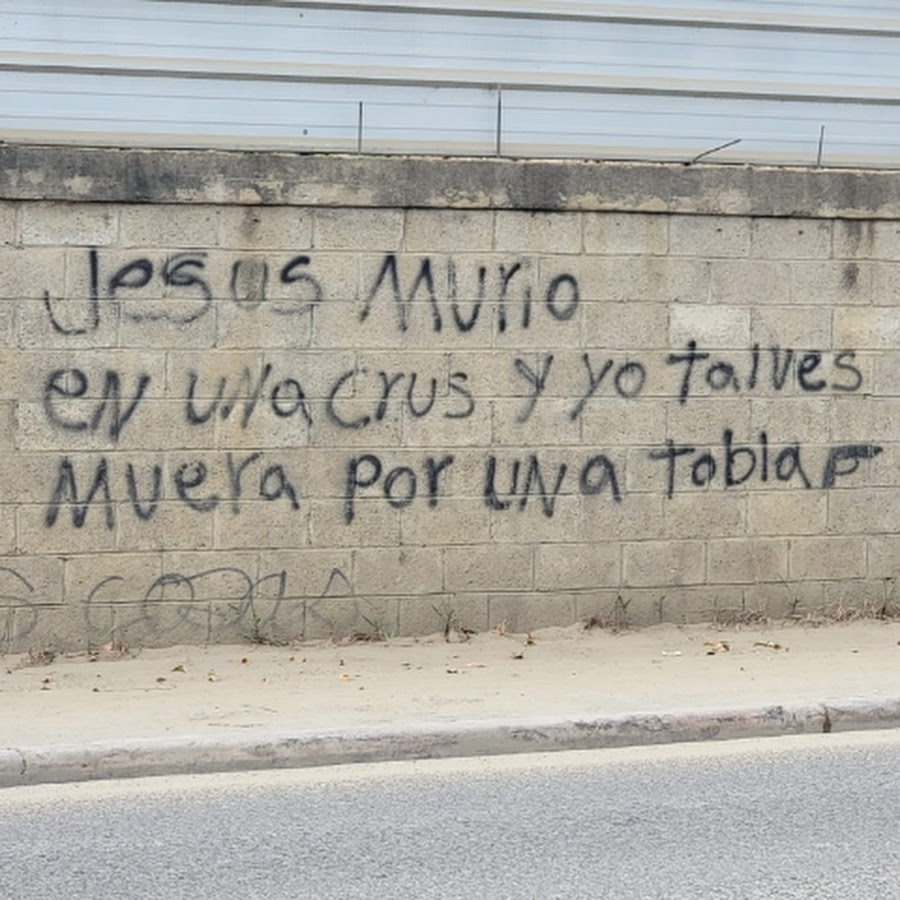 Jesus Murio
en una crus y yo talves
Muera por una tabla